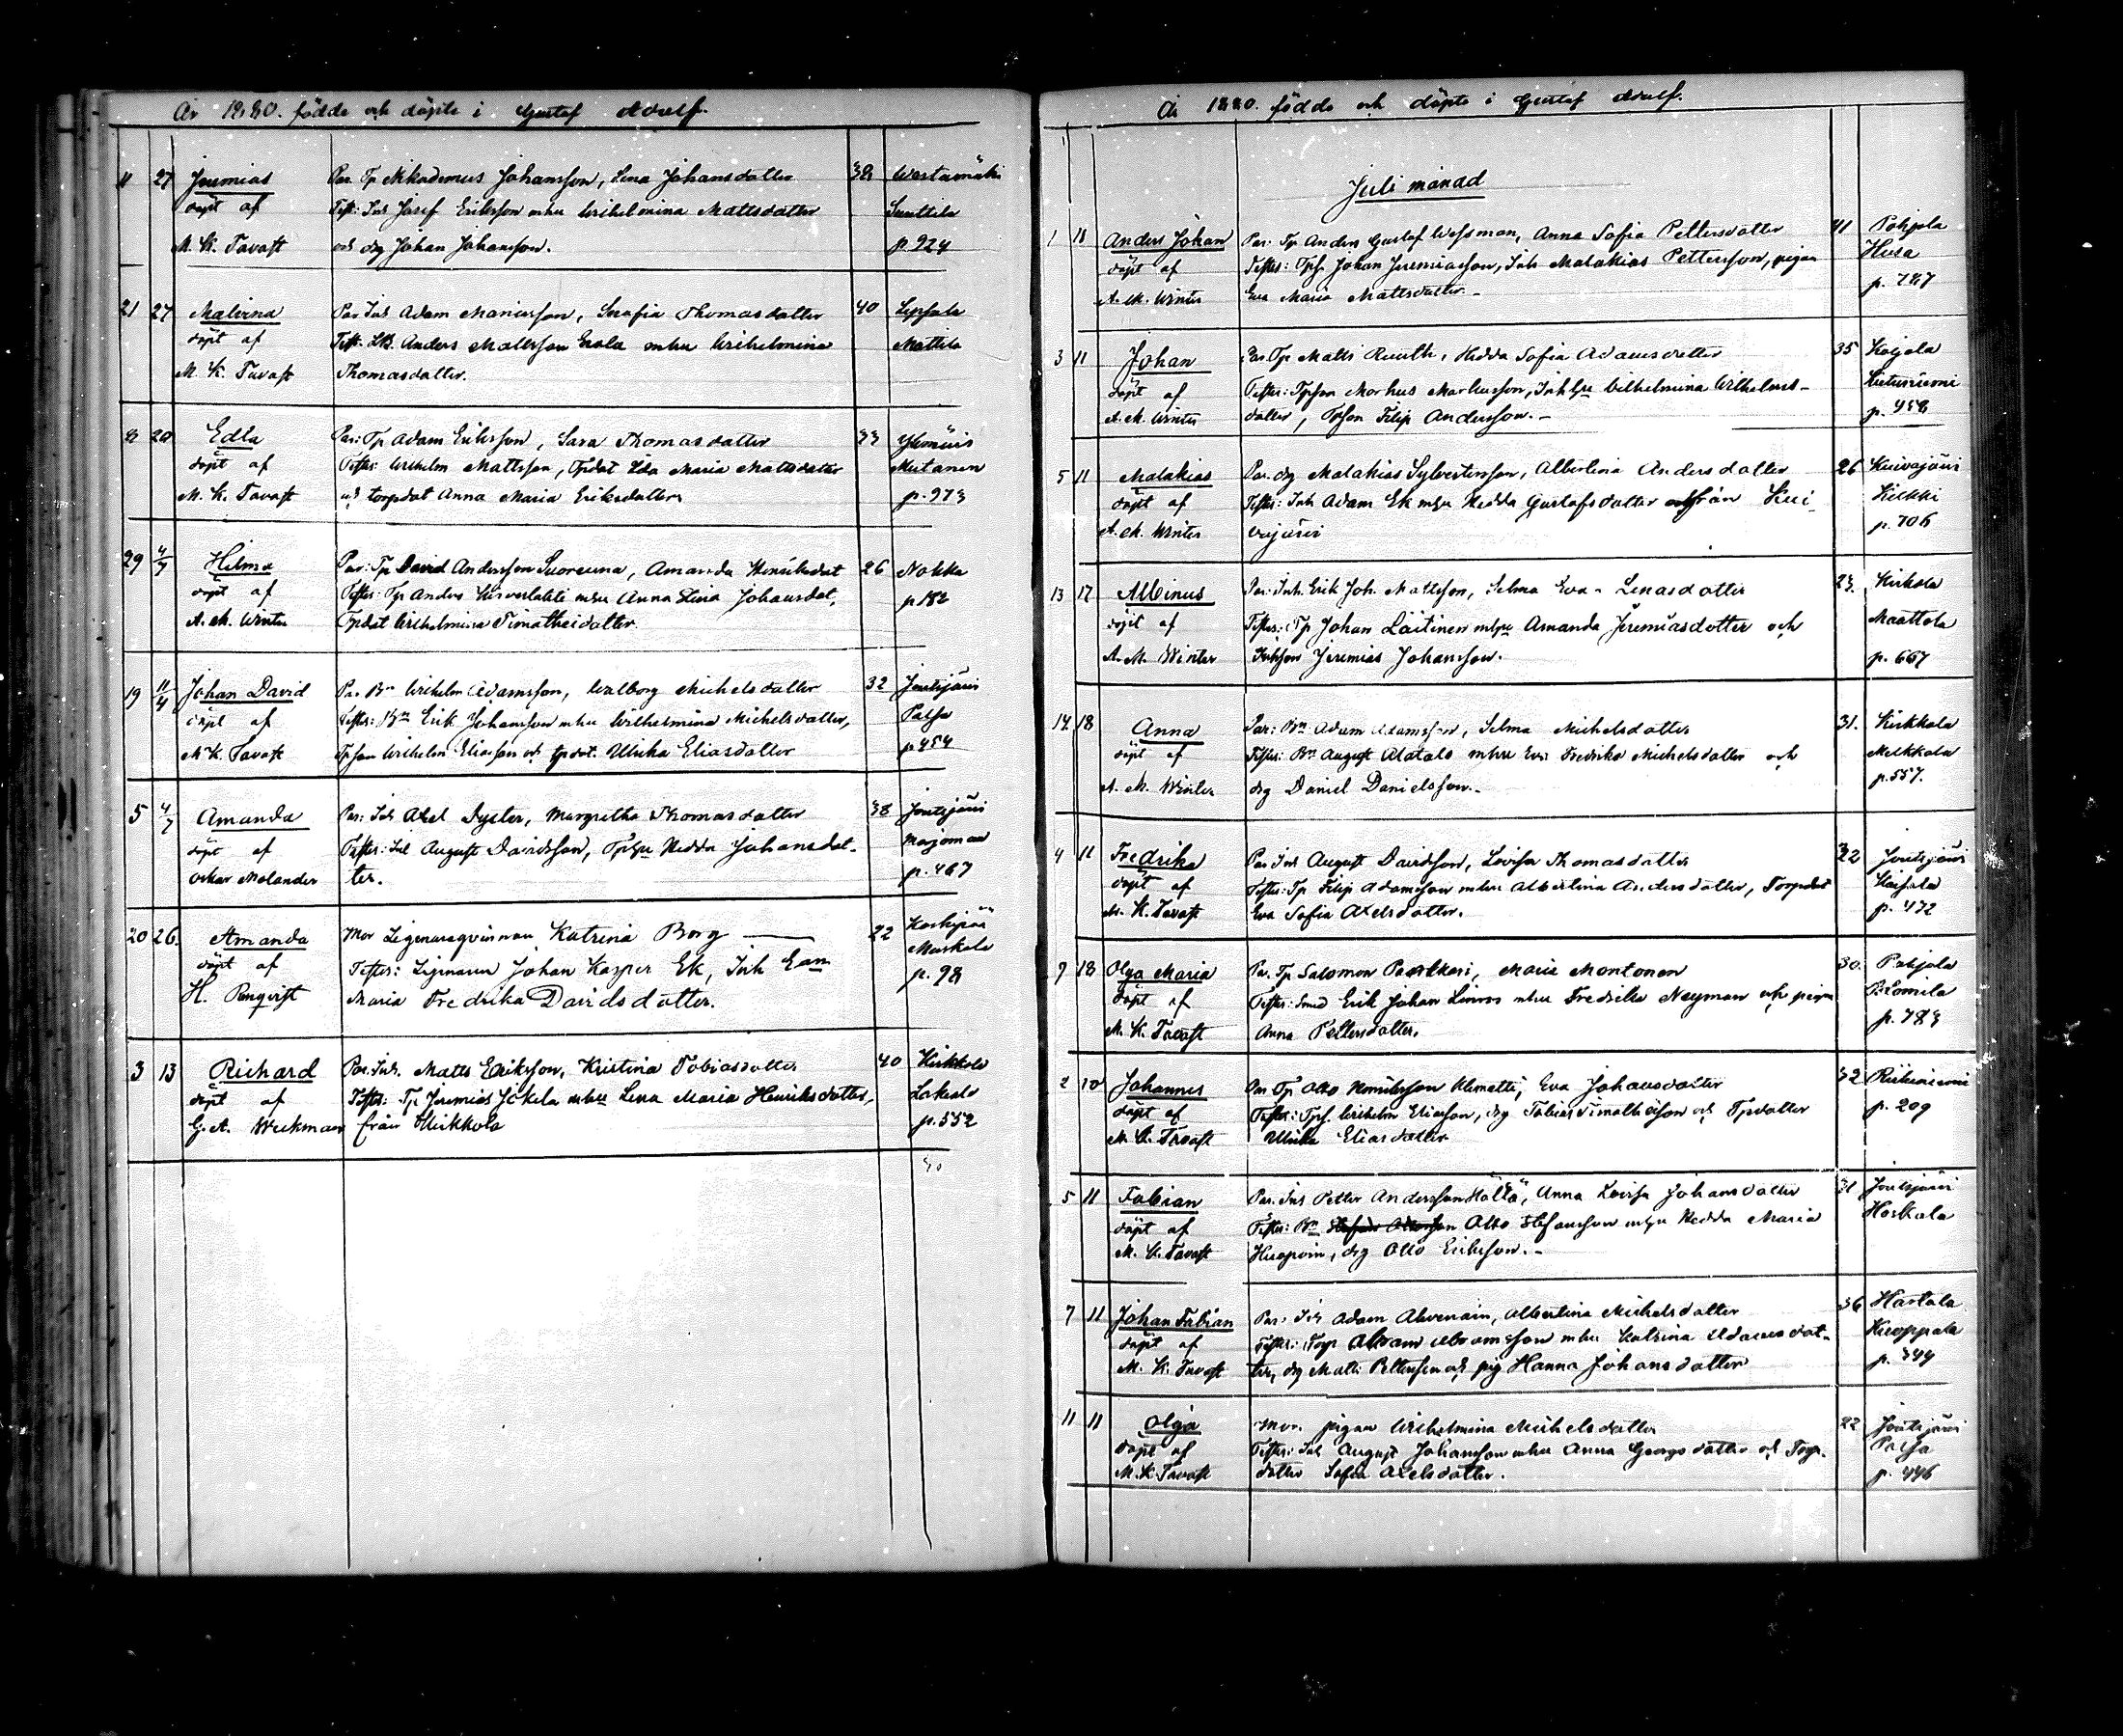 År 1880. födde och döpte i Gustaf Adolf.
11 27 Jeremias Par. Tp Nikodemus Johansson, Lena Johansdotter 38 Westamäki
döpt af Test: Inh Josef Eriksson mhu Wilhelmina Mattsdotter Suuttila
M. K. Tavast och dg Johan Johansson. p. 924
21 27 Malvina Par Inh Adam Maniusson, Serafia Thomasdotter 40
döpt af Test: Anders Mattsson mhu Wilhelmina Mattila
M. K. Tavast Thomasdotter.
8 20 Edla Par: Tp Adam Eriksson, Sara Thomasdotter 33
döpt af Testes: Wilhelm Mattsson, Tpdot Ida Maria Mattsdotter Mutanen
M. K. Tavast och torpdot Anna Maria Eriksdotter p. 973
29 4/7 Hilma Par: Tp David Andersson Suoreuna, Amanda Henriksdot 26 Nokka
döpt af Testes: Tp Anders mhu Anna Stina Johansdot, p 182
A. M. Winter Tpdot Wilhelmina Timotheidotter
19 11/4 Johan David Par. Bn Wilhelm Adamsson, Walborg Michelsdotter 32 Joutsjärvi
döpt af Testes: Bn Erik Johansson mhu Wilhelmina Michelsdotter, Palsa
M K. Tavast Tpson Wilhelm Eliasson och tpdot. Ulrika Eliasdotter p. 454
5 4/7 Amanda Par: Inh Axel Dyster, Margretha Thomasdotter 38 Joutsjärvi
döpt af Testes: Inh August Davidsson, Tphu Hedda Johansdot- Marjomaa
Oskar Melander ter. p. 467
20 26 Amanda Mor Legenaraqvinnan Katrina Borg 22 Koskipää
döpt af Testes: Johan Kasper Ek, Inh Enn Maskala
H. Renqvist Maria Fredrika Davidsdotter. p. 98
3 13 Richard Par. Inh. Matts Eriksson, Kristina Tobiasdotter 40 Kirkkola
döpt af Testes: Tp Jeremias Jokela mhu Lena Maria Henriksdotter, Lakeala
G. A. Wickman från Kirkkola p. 552
År 1880. födde och döpte i Gustaf Adolf.
Juli månad
1 18 Anders Johan Par: Tp Anders Gustaf Wessman, Anna Sofia Pettersdotter 41 Pohjola
döpt af Testes: Tps. Johan Jeremiasson, Inh Malakias Pettersson, pigan Husa
A. M. Winter Eva Maria Mattsdotter.- p. 787
3 11 Johan Par. Tp Matts Ruuth, Hedda Sofia Adamsdotter 35 Koijola
döpt af Testes: Tpson Markus Markusson, Inhhu Wilhelmina Wilhelms-
A. M. Winter dotter, Tpson Filip Andersson.- p. 458
5 11 Malakias Par. dg Malakias Sylvestersson, Albertina Andersdotter 26 Kuivajärvi
döpt af Testes: Inh Adam Ek mhu Hedda Gustafsdotter från Kui- Kilkki
A. M. Winter vajärvi p. 706
13 17 Albinus Par. Inh. Erik Joh. Mattsson, Selma Eva-Lenasdotter 23. Kirkola
döpt af Testes: Tp Johan Laitinen mhu Amanda Jeremiasdotter och Maattola
A. M. Winter Inhson Jeremias Johansson. p. 667
14 18 Anna Par: Bn Adam Adamsson, Selma Michelsdotter 31. Kirkkola
döpt af Testes: Bn August Alatalo mhu Eva Fredrika Michelsdotter och Mukkala
A. M. Winter dg Daniel Danielsson.- p. 557.
4 11 Fredrika Par Inh August Davidsson, Lovisa Thomasdotter 32 Joutsjärvi
döpt af Testes: Tp Filip Adamsson mhu Albertina Andersdotter, Torpdot
M. K. Tavast Eva Sofia Axelsdotter. p. 472
7 18 Olga Maria Par. Tp Salomon Partkari, Maria Montonen 30. Pohjola
döpt af Testes: Smed Erik Johan Linros mhu Fredrika Nyman och pigan
M. K. Tavast Anna Pettersdotter. p. 783
2 10 Johannes Par Tp Otto Henriksson Alimatti, Eva Johansdotter 32
döpt af Testes: Tps. Wilhelm Eliasson, dg Tobias Timotheisson och Tpdotter p. 209
M. K. Tavast Ulrika Eliasdotter
5 11 Fabian Par. Inh Petter Andersson Hättä, Anna Lovisa Johansdotter 31 Joutsjärvi
döpt af Testes: Bn Otto Stefansson mhu Hedda Maria Hoskala
M. K. Tavast dg Otto Eriksson.-
7 11 Johan Fabian Par: Inh Adam Ahvenain, Albertina Michelsdotter 36 Hartola
döpt af Testes: Torp Abram Abramsson mhu Katrina Adamsdot- Kuoppala
M. K. Tavast ter, dg Matts Pettersson och pig Hanna Johansdotter p. 344
11 11 Olga Mor. pigan Wilhelmina Michelsdotter 22 Joutsjärvi
döpt af Testes: Inh August Johansson mhu Anna Georgsdotter och Torp- Palsa
M. K. Tavast dotter Sofia Axelsdotter. p. 446